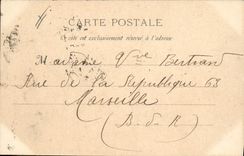 CARTE POSTALE
Ce côté est exclusivement réservé à l'adresse
Madame Vve Bertrand
Rue de la République 68
Marseille
(B.d.R)